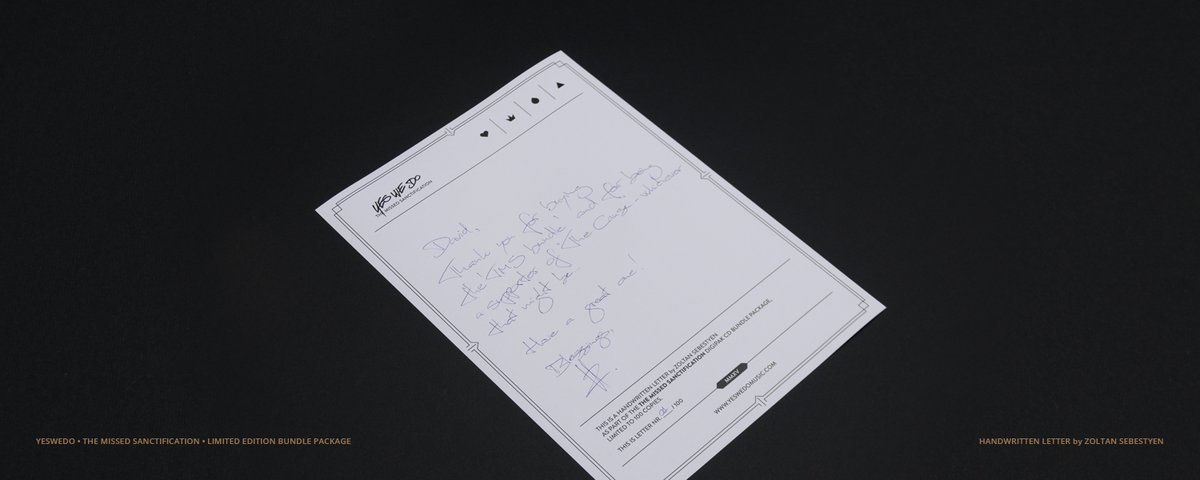 YES WE DO
THE MISSED SANCTIFICATION
David,
Thank you for buying
the 'TMS bundle' and for being
a supporter of 'The Cause' - whatever
that might be.
Have a great one!
Blessings,
THIS IS A HANDWRITTEN LETTER by ZOLTAN SEBESTYEN
AS PART OF THE THE MISSED SANCTIFICATION DIGIPAK CD BUNDLE PACKAGE,
LIMITED TO 100 COPIES.
THIS IS LETTER NR. / 100
MMXV
WWW.YESWEDOMUSIC.COM
YESWEDO • THE MISSED SANCTIFICATION • LIMITED EDITION BUNDLE PACKAGE
HANDWRITTEN LETTER by ZOLTAN SEBESTYEN